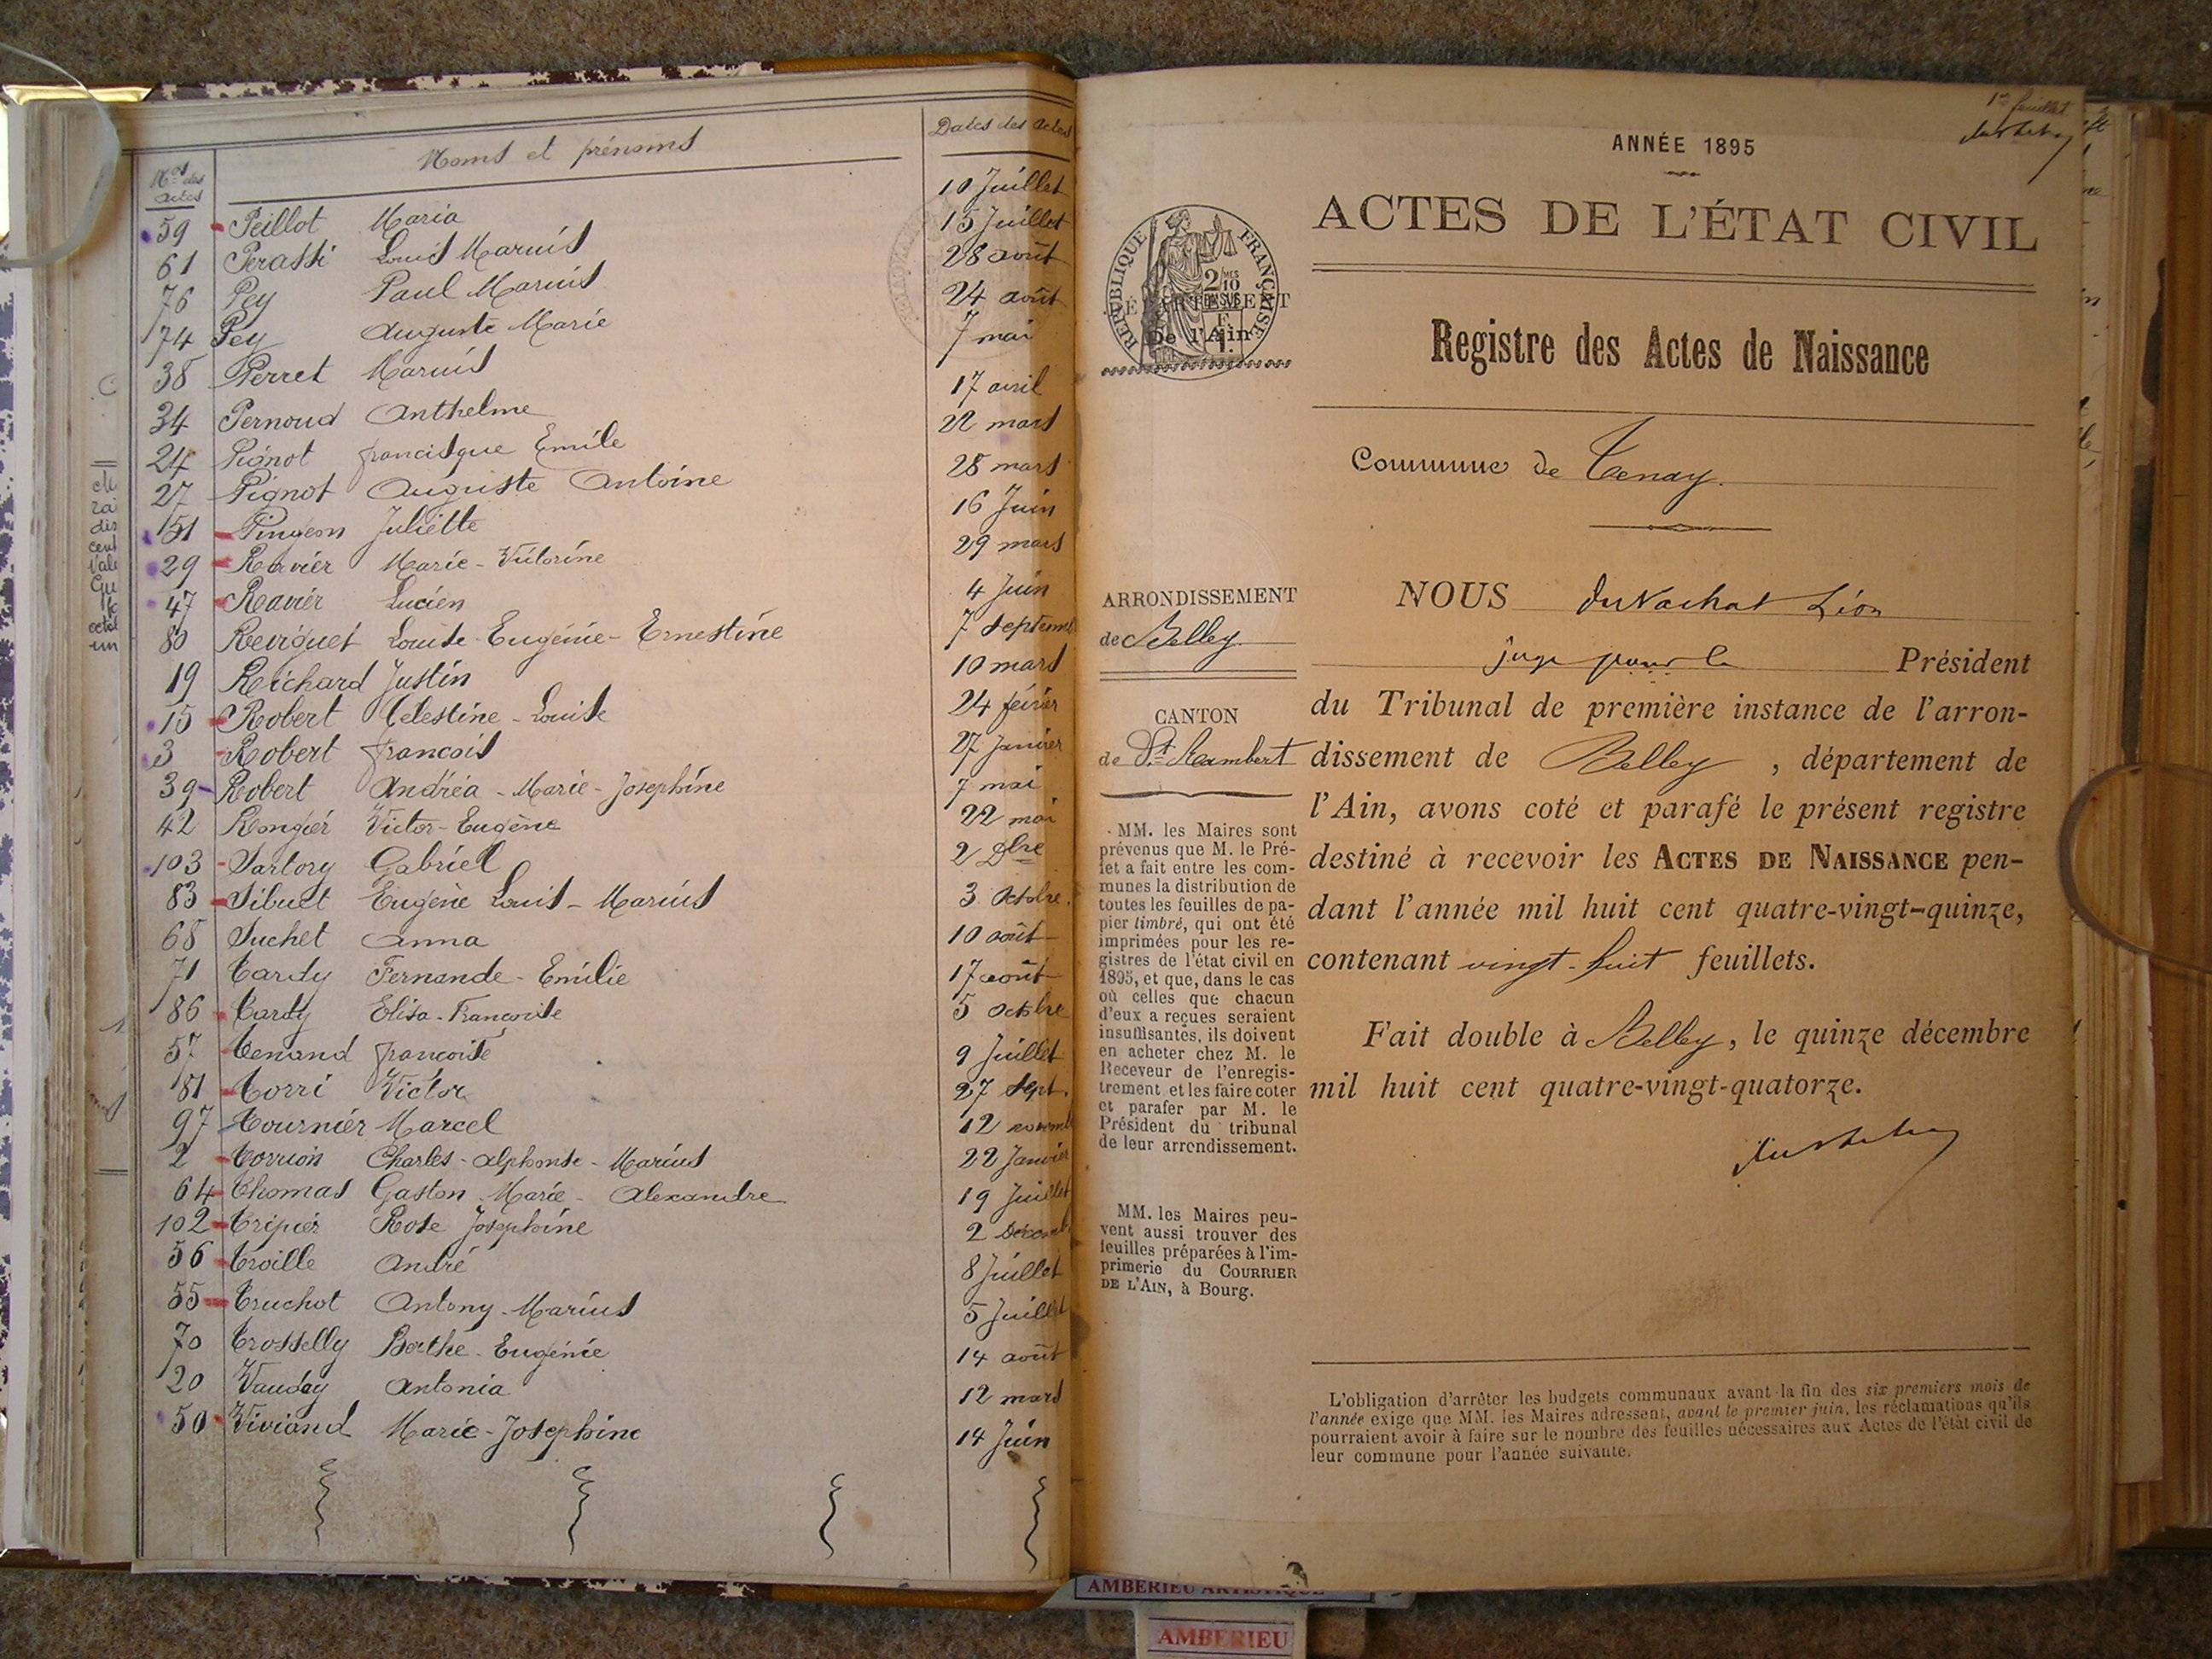 Nos des actes
Noms et prénoms
Dates des actes
59 Peillot Maria 10 Juillet
61 Perassi Louis Marius 15 Juillet
76 Pey Paul Marius 28 août
74 Pey Auguste Marie 24 août
38 Perret Marius 7 mai
34 Pernoud Anthelme 17 avril
24 Pignot francisque Emile 22 mars
27 Pignot Auguste Antoine 28 mars
51 Pingeon Juliette 16 Juin
29 Ravier Marie - Victorine 29 mars
47 Ravier Lucien 4 Juin
80 Louise - Eugénie - Ernestine 7 septemb
19 Reichard Justin 10 mars
15 Robert Célestine - Louise 24 février
3 Robert françois 27 Janvier
39 Robert Andréa - Marie - Joséphine 7 mai
42 Rongier Victor - Eugène 22 mai
103 Sartory Gabriel 2 Dbre
83 Sibuet Eugène Louis - Marius 3 octobre
68 Suchet Anna 10 août
71 Tardy Fernande - Emilie 17 août
86 Tardy Elisa - Françoise 5 octobre
57 Tenand françoise 9 Juillet
81 Torri Victor 27 sept.
97 Tournier Marcel 12 novemb
2 Torrion Charles - Alphonse - Marius 22 Janvier
64 Thomas Gaston - Marie - Alexandre 19 Juillet
102 Tripier Rose Joséphine 2 Décemb
56 Troille André 8 Juillet
55 Truchot Antony - Marius 5 Juillet
70 Trosselly Berthe - Eugénie 14 août
20 Vauday Antonia 12 mars
50 Viviand Marie - Joséphine 14 Juin
1er feuillet
ANNÉE 1895
ACTES DE L'ÉTAT CIVIL
RÉPUBLIQUE FRANÇAISE
2 MES
10
EN SUS
DÉPARTEMENT
De l'Ain
Registre des Actes de Naissance
Commune de Tenay.
ARRONDISSEMENT
de Belley
CANTON
de St Rambert
MM. les Maires sont
prévenus que M. le Pré-
fet a fait entre les com-
munes la distribution de
toutes les feuilles de pa-
pier timbré, qui ont été
imprimées pour les re-
gistres de l'état civil en
1895, et que, dans le cas
où celles que chacun
d'eux a reçues seraient
insuffisantes, ils doivent
en acheter chez M. le
Receveur de l'enregis-
trement et les faire coter
et parafer par M. le
Président du tribunal
de leur arrondissement.
MM. les Maires peu-
vent aussi trouver des
feuilles préparées à l'im-
primerie du COURRIER
DE L'AIN, à Bourg.
NOUS duVachat Léon
juge pour le Président
du Tribunal de première instance de l'arron-
dissement de Belley , département de
l'Ain, avons coté et parafé le présent registre
destiné à recevoir les ACTES DE NAISSANCE pen-
dant l'année mil huit cent quatre-vingt-quinze,
contenant vingt-huit feuillets.
Fait double à Belley, le quinze décembre
mil huit cent quatre-vingt-quatorze.
L'obligation d'arrêter les budgets communaux avant la fin des six premiers mois de
l'année exige que MM. les Maires adressent, avant le premier juin, les réclamations qu'ils
pourraient avoir à faire sur le nombre des feuilles nécessaires aux Actes de l'état civil de
leur commune pour l'année suivante.
AMBERIEU ARTISTIQUE
AMBERIEU